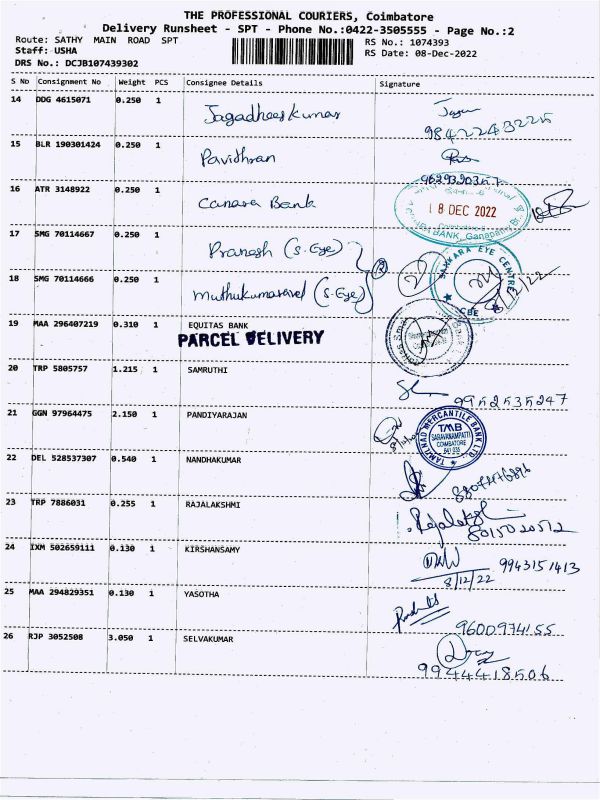 THE PROFESSIONAL COURIERS, Coimbatore
Delivery Runsheet - SPT - Phone No.:0422-3505555 - Page No.:2
Route: SATHY MAIN ROAD SPT
RS No.: 1074393
Staff: USHA
RS Date: 08-Dec-2022
DRS No.: DCJB107439302
S No Consignment No Weight PCS Consignee Details Signature
14 DDG 4615071 0.250 1 Jagadheeskumar
15 BLR 190301424 0.250 1 Pavidhran
16 ATR 3148922 0.250 1 Canara Bank
18 DEC 2022
BANK, Ganapathy
17 SMG 70114667 0.250 1 Pranesh (S.Eye)
SANKARA EYE CENTRE
CBE
18 SMG 70114666 0.250 1 Muthukumaravel (S.Eye)
8/12/22
19 MAA 296407219 0.310 1 EQUITAS BANK
PARCEL DELIVERY
20 TRP 5805757 1.215 1 SAMRUTHI
9952535247
21 GGN 97964475 2.150 1 PANDIYARAJAN
TAMILNAD MERCANTILE BANK LTD
TMB
SARAVANAMPATTI
COIMBATORE
641 035
22 DEL 528537307 0.540 1 NANDHAKUMAR
23 TRP 7886031 0.255 1 RAJALAKSHMI
8015020512
24 IXM 502659111 0.130 1 KIRSHANSAMY
9943151413
8/12/22
25 MAA 294829351 0.130 1 YASOTHA
9600974155
26 RJP 3052508 3.050 1 SELVAKUMAR
9944418506